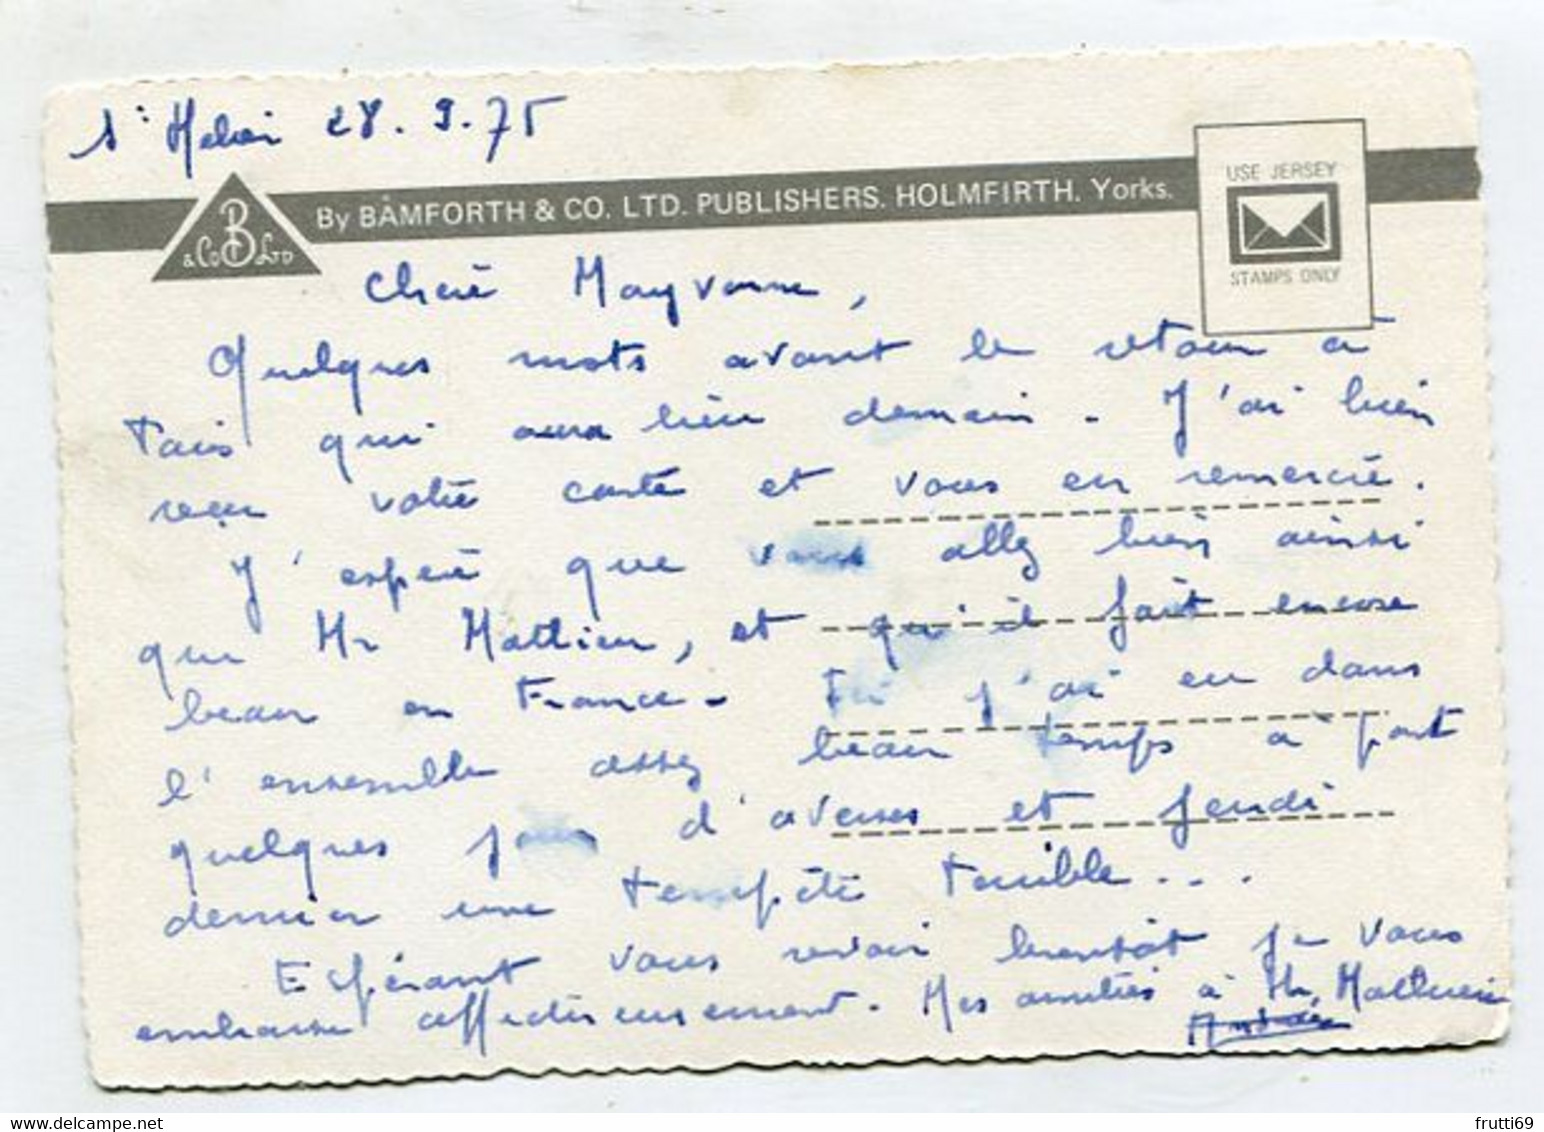 St Helier 28.9.75
By BAMFORTH & CO. LTD. PUBLISHERS. HOLMFIRTH. Yorks.
B
& Co Ltd
USE JERSEY
STAMPS ONLY
Chère Mayvonne,
Quelques mots avant le retour à
Paris qui aura lieu demain. J'ai bien
reçu votre carte et vous en remercie.
J'espère que vous allez bien ainsi
que Mr Mathieu, et qu'il fait encore
beau en France. Ici j'ai eu dans
l'ensemble assez beau temps à part
quelques jours d'averses et jeudi
dernier une tempête terrible...
Espérant vous revoir bientôt je vous
embrasse affectueusement. Mes amitiés à Mr Mathieu
Andrée
frutti69
www.delcampe.net